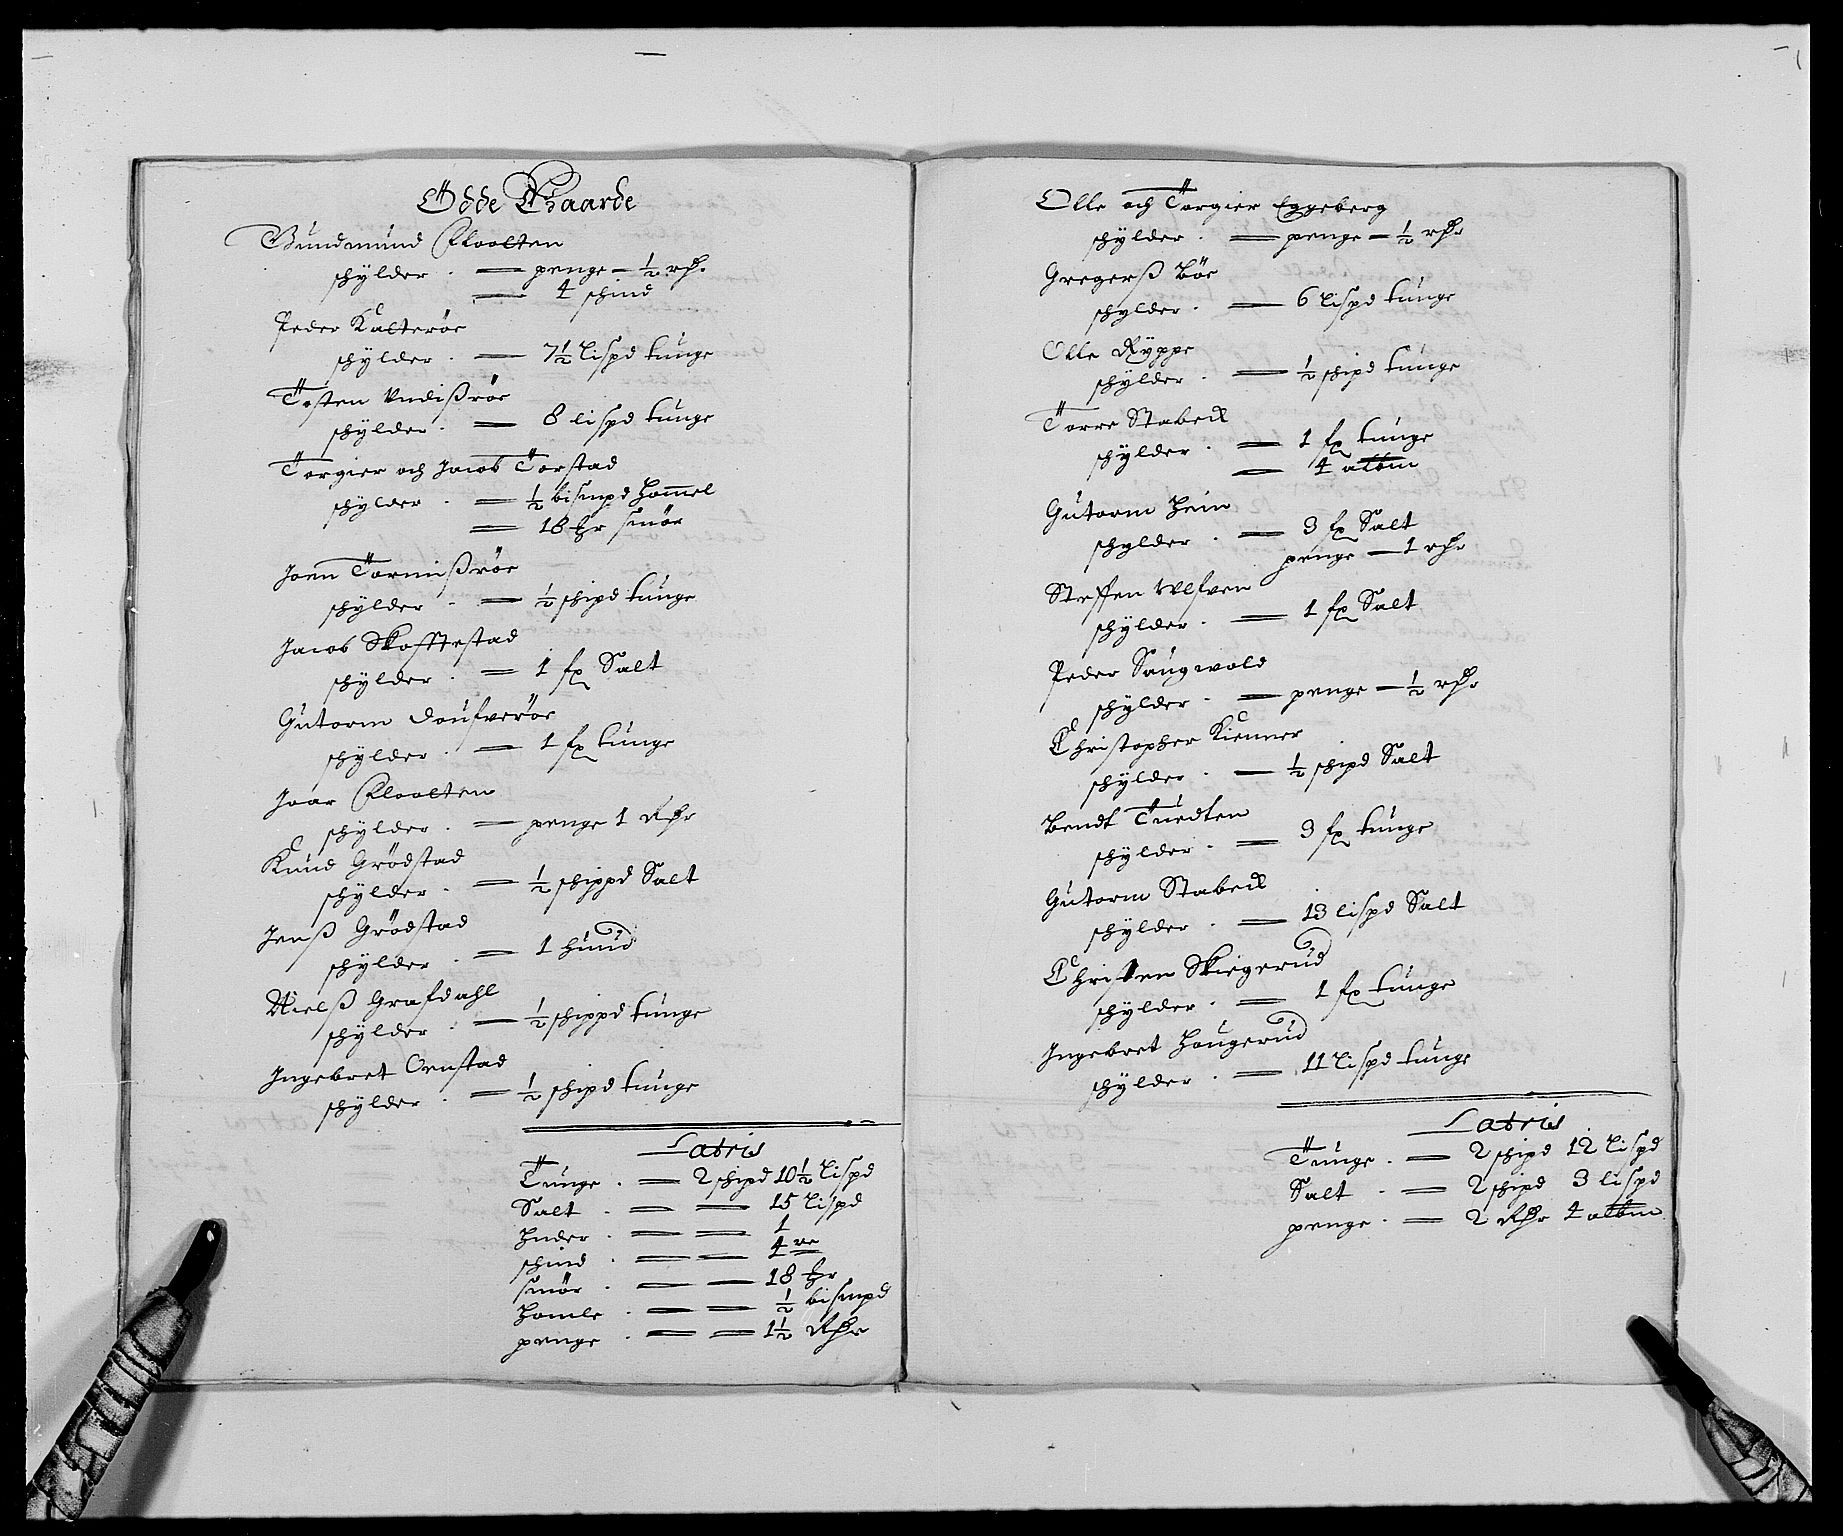 Ødde Gaarde
Gundmund Floolten
schÿlder . — penge — ½ rdr.
— 4 schind
Peder Kalterøe
schÿlder . — 7½ Lispd tunge
Tosten Undißrøe
schÿlder . — 8 lispd tunge
Torgier och Jacob Torstad
schÿlder . — ½ bismpd Hommel
— 18 mkr smør
Joen Tormißrøe
schÿlder . — ½ schipd tunge
Jacob Skofftestad
schÿlder . — 1 fx Salt
Gutorm Doufverøe
schÿlder . — 1 fx tunge
Joar Floolten
schÿlder . — penge 1 Rdr
Knud Grødstad
schÿlder . — ½ schippd Salt
Jenß Grødstad
schÿlder . — 1 huud
Nielß Grafdahl
schÿlder . — ½ schippd tunge
Ingebret Ornstad
schÿlder . — ½ schipd tunge
Latris
Tunge . — 2 schipd 10½ Lispd
Salt . — — 15 Lispd
Huder . — — 1
schind . — — 4
smør . — — 18 mkr
Homle . — — ½ bismpd
penge . — — 1½ Rdr
Olle och Torgier Eggeberg
schÿlder . — penge — ½ rdr
Gregerß Bøe
schÿlder . — 6 Lispd tunge
Olle Rÿppe
schÿlder . — ½ schipd tunge
Torre Stabeck
schÿlder . — 1 fx tunge
— 4 albm
Gutorm Hem
schÿlder . — 3 fx Salt
penge — 1 rdr
Steffen Ulfven
schÿlder . — 1 fx Salt
Peder Saugwold
schÿlder . — penge — ½ rdr
Christopher Kienner
schÿlder . — ½ schipd Salt
Bendt Tuedten
schÿlder . — 3 fx tunge
Gutorm Stabeck
schÿlder . — 13 lispd Salt
Christen Skiegerud
schÿlder . — 1 fx tunge
Ingebret Hougerud
schÿlder . — 11 Lispd tunge
Latris
Tunge . — 2 schipd 12 Lispd
Salt . — 2 schipd 3 lispd
penge . — 2 Rdr 4 albm